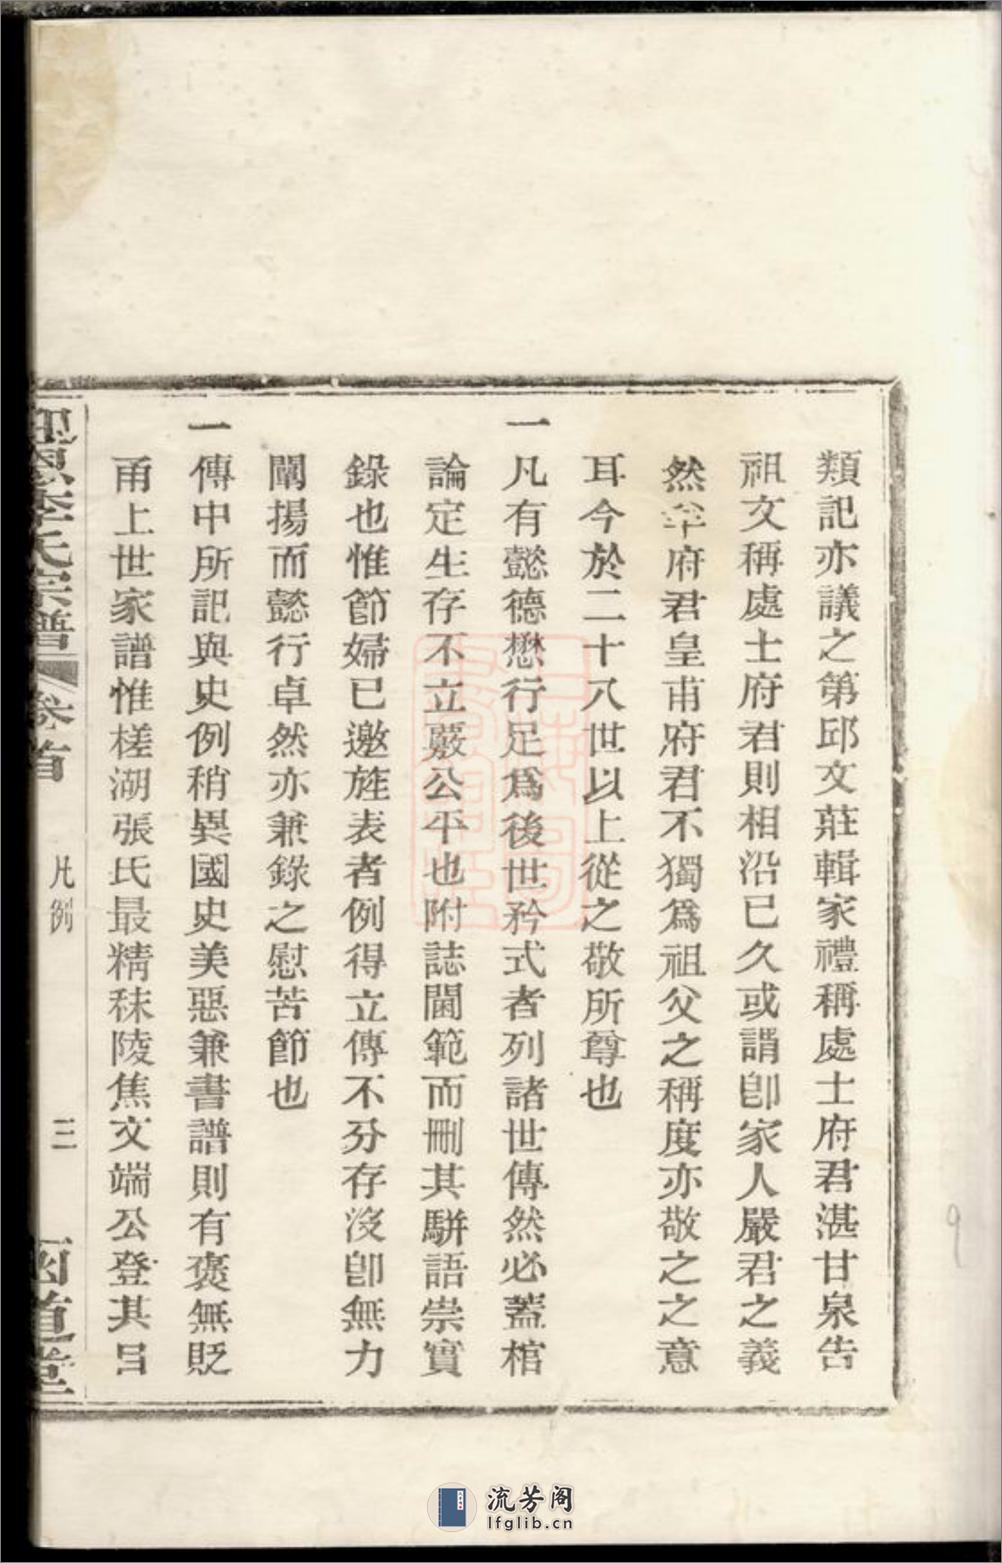 類記亦議之第邱文莊輯家禮稱處士府君湛甘泉告
祖文稱處士府君則相沿已久或謂卽家人嚴君之義
然府君皇甫府君不獨爲祖父之稱度亦敬之之意
耳今於二十八世以上從之敬所尊也
一凡有懿德懋行足爲後世矜式者列諸世傳然必蓋棺
論定生存不立嚴公平也附誌閫範而刪其駢語崇實
錄也惟節婦已邀旌表者例得立傳不分存沒卽無力
闡揚而懿行卓然亦兼錄之慰苦節也
一傳中所記與史例稍異國史美惡兼書譜則有褒無貶
甬上世家譜惟槎湖張氏最精秣陵焦文端公登其目
李氏宗譜
卷首
凡例
三
道堂
流芳阁
lfglib.cn
9